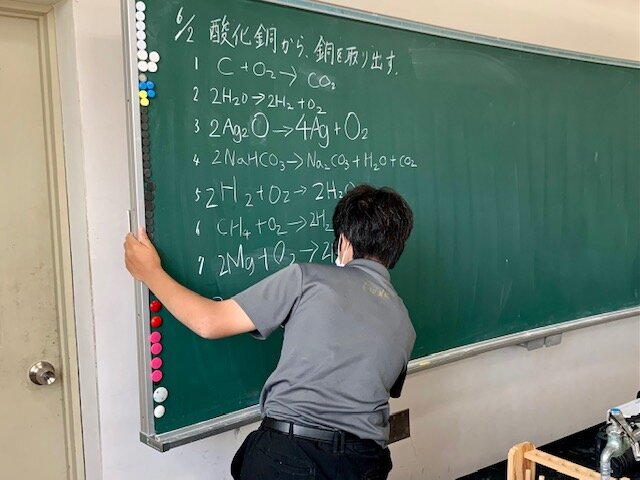 6/2 酸化銅から、銅を取り出す.
1 C + O₂ → CO₂
2 2H₂O → 2H₂ + O₂
3 2Ag₂O → 4Ag + O₂
4 2NaHCO₃ → Na₂CO₃ + H₂O + CO₂
5 2H₂ + O₂ → 2H₂O
6 CH₄ + O₂ → 2H₂
7 2Mg + O₂ →